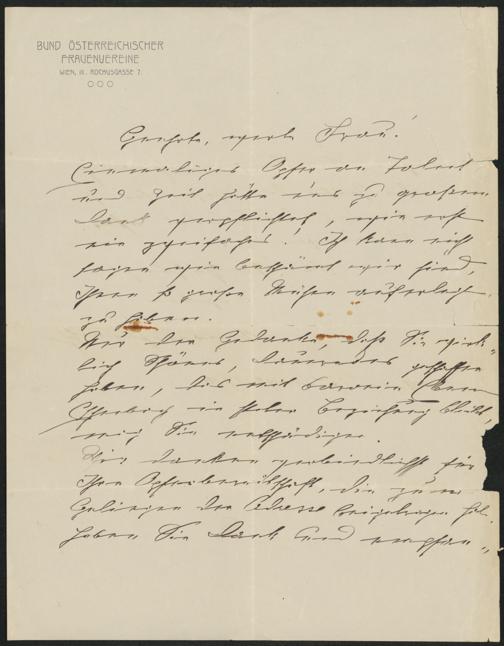 BUND ÖSTERREICHISCHER
FRAUENVEREINE
WIEN, III. ROCHUSGASSE 7.
Geehrte, werte Frau!
Einmaliges Opfer an Talent
und Zeit hätte uns zu großem
Dank verpflichtet, wie erst
ein zweifaches! Ich kann nicht
sagen wie beschämt wir sind,
Ihnen so große Mühen auferlegt
zu haben.
Nur der Gedanke, daß Sie wirk-
lich Schönes, Dauerndes geschaffen
haben, das mit
in steter Beziehung bleibt,
mag Sie entschädigen.
Wir danken verbindlichst für
Ihre Opferbereitschaft, die zum
Gelingen der Adresse beigetragen hat
haben Sie Dank und empfan-